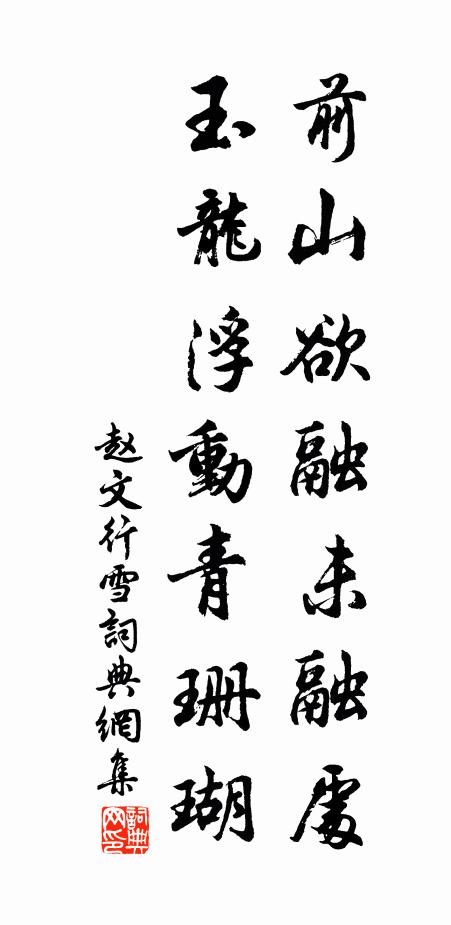 前山欲融未融處
玉龍浮動青珊瑚
赵文行雪詞典網集
詞典網印